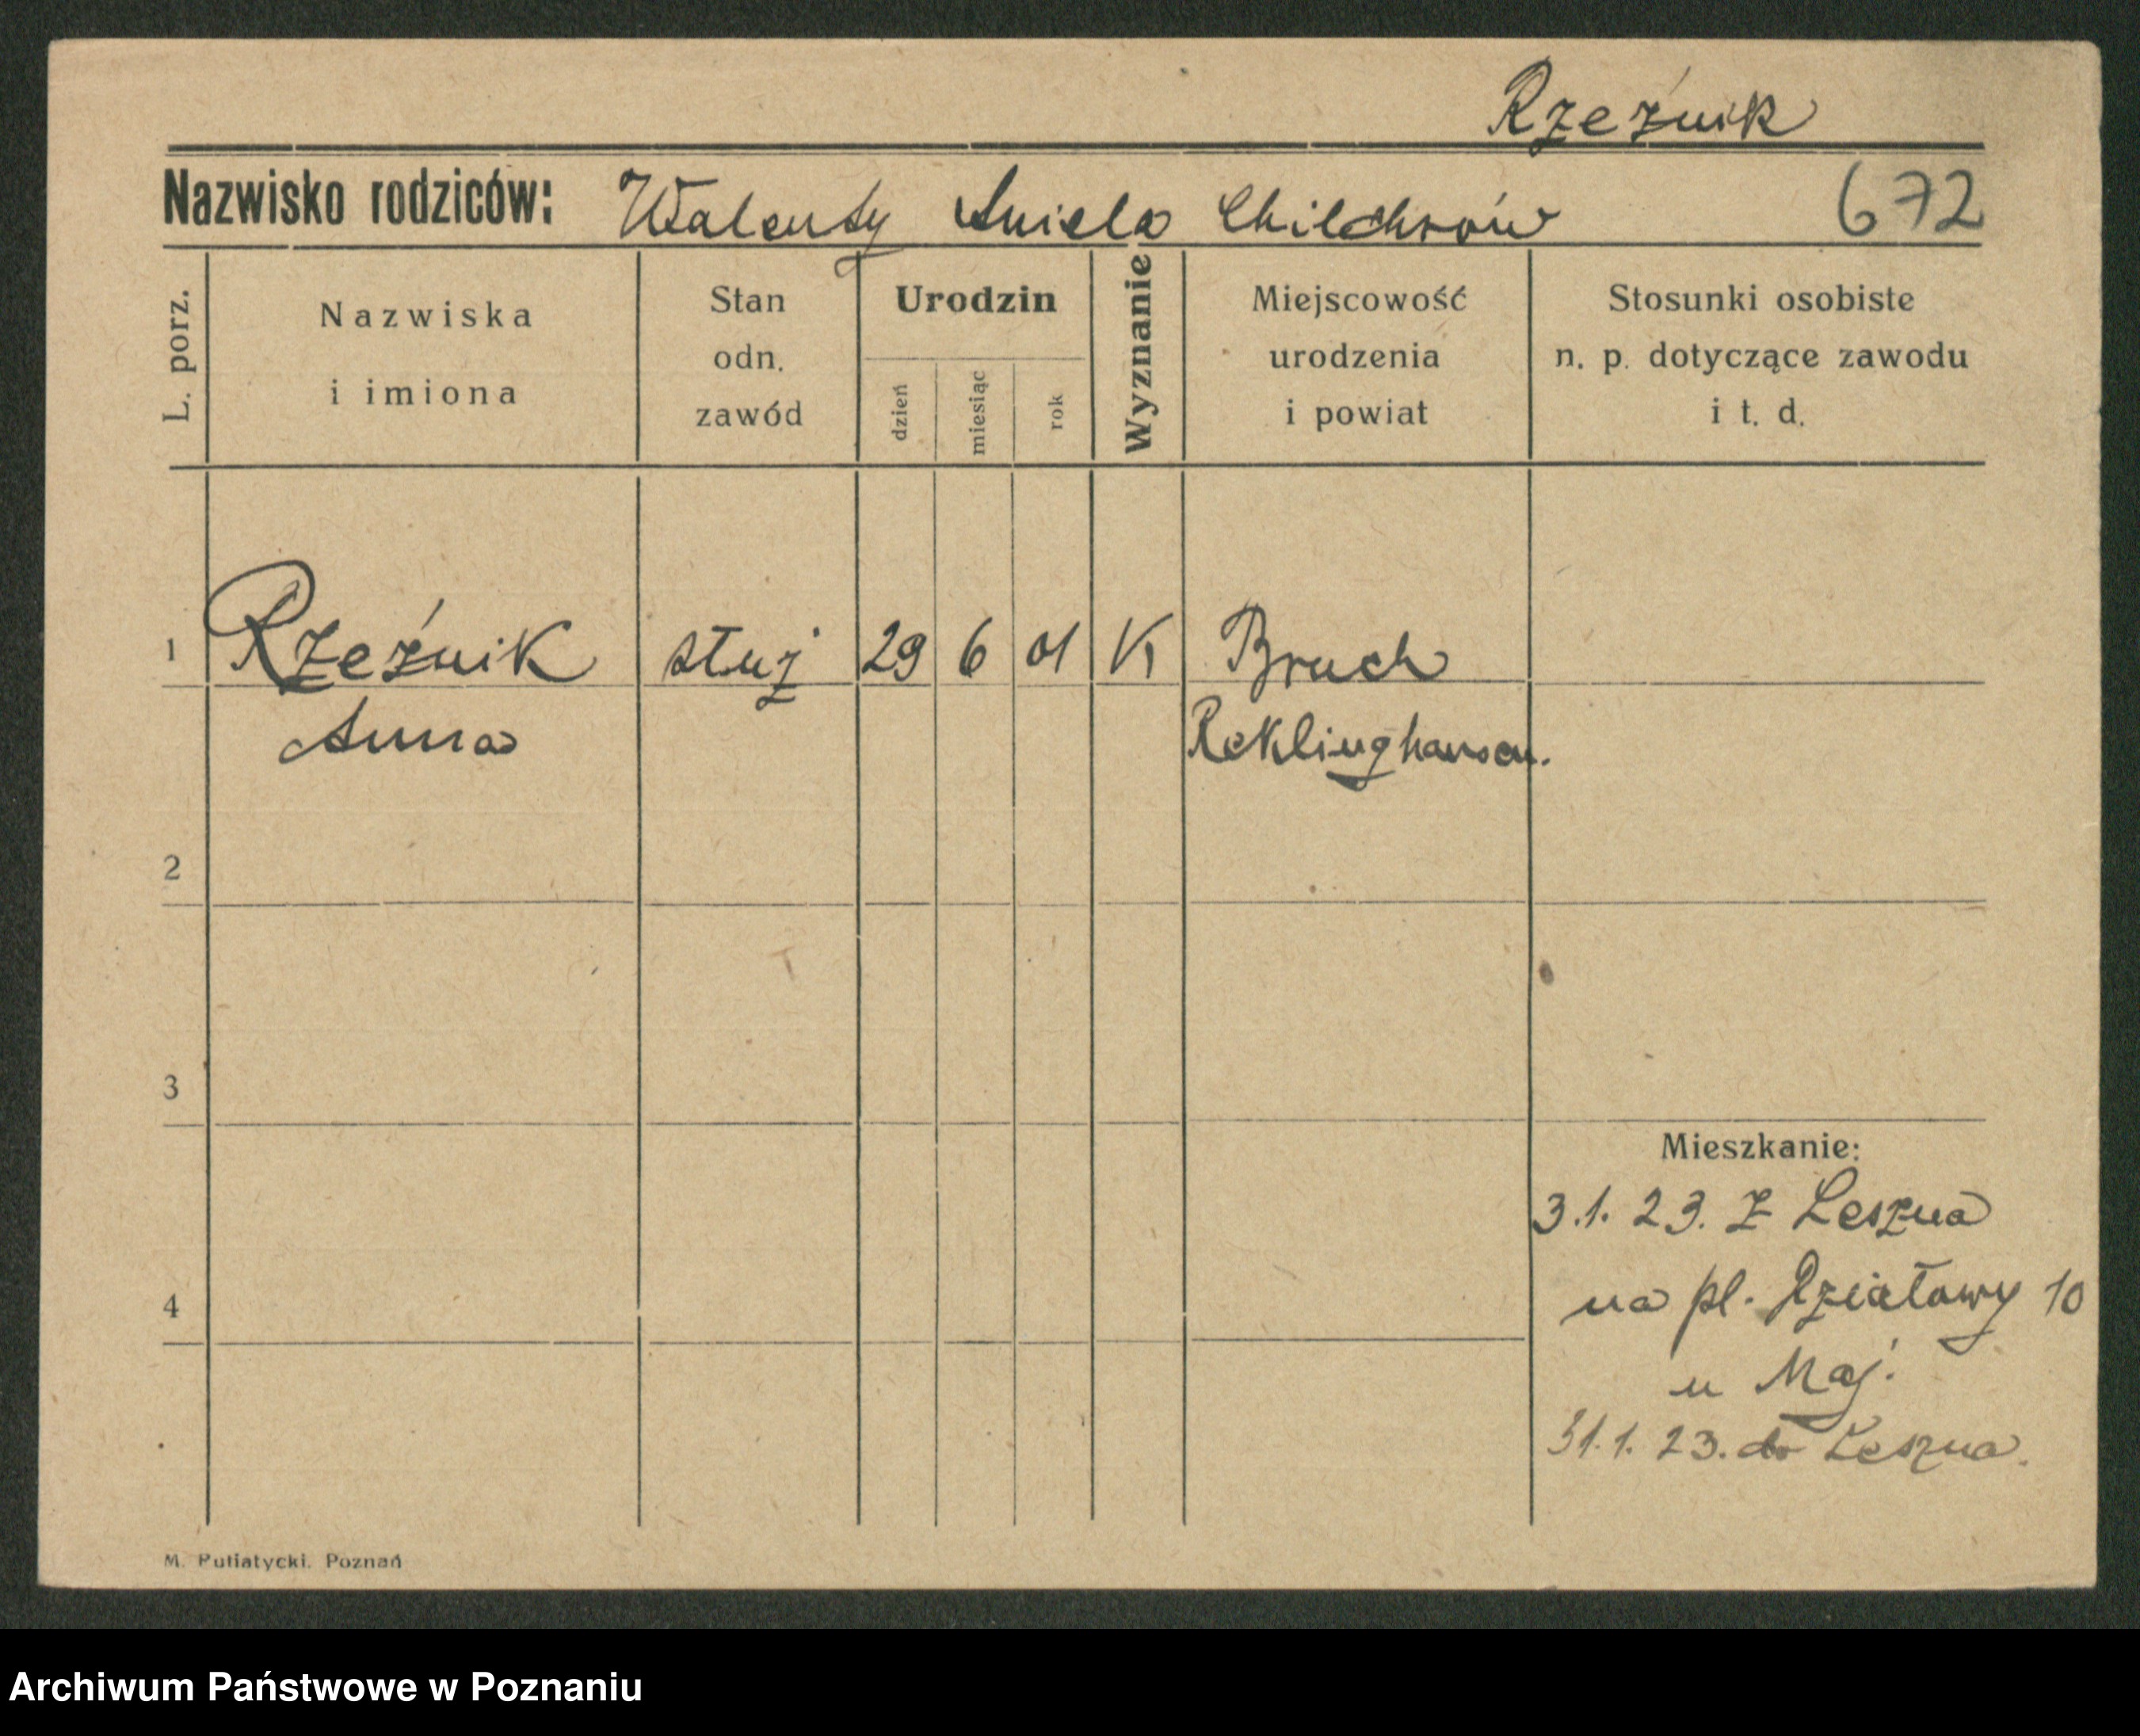 Rzeźnik
Nazwisko rodziców: Walenty Aniela 672
L. porz.
Nazwiska i imiona
Stan odn. zawód
Urodzin
dzień
miesiąc
rok
Wyznanie
Miejscowość urodzenia i powiat
Stosunki osobiste n. p. dotyczące zawodu i t. d.
1 Rzeźnik służ 29 6 01 K Bruch
Anna Reklinghausen.
2
3
Mieszkanie:
3.1.23. z Leszna
na pl. Działowy 10
4
u Maj.
31.1.23. do Leszna.
M. Putiatycki. Poznań
Archiwum Państwowe w Poznaniu